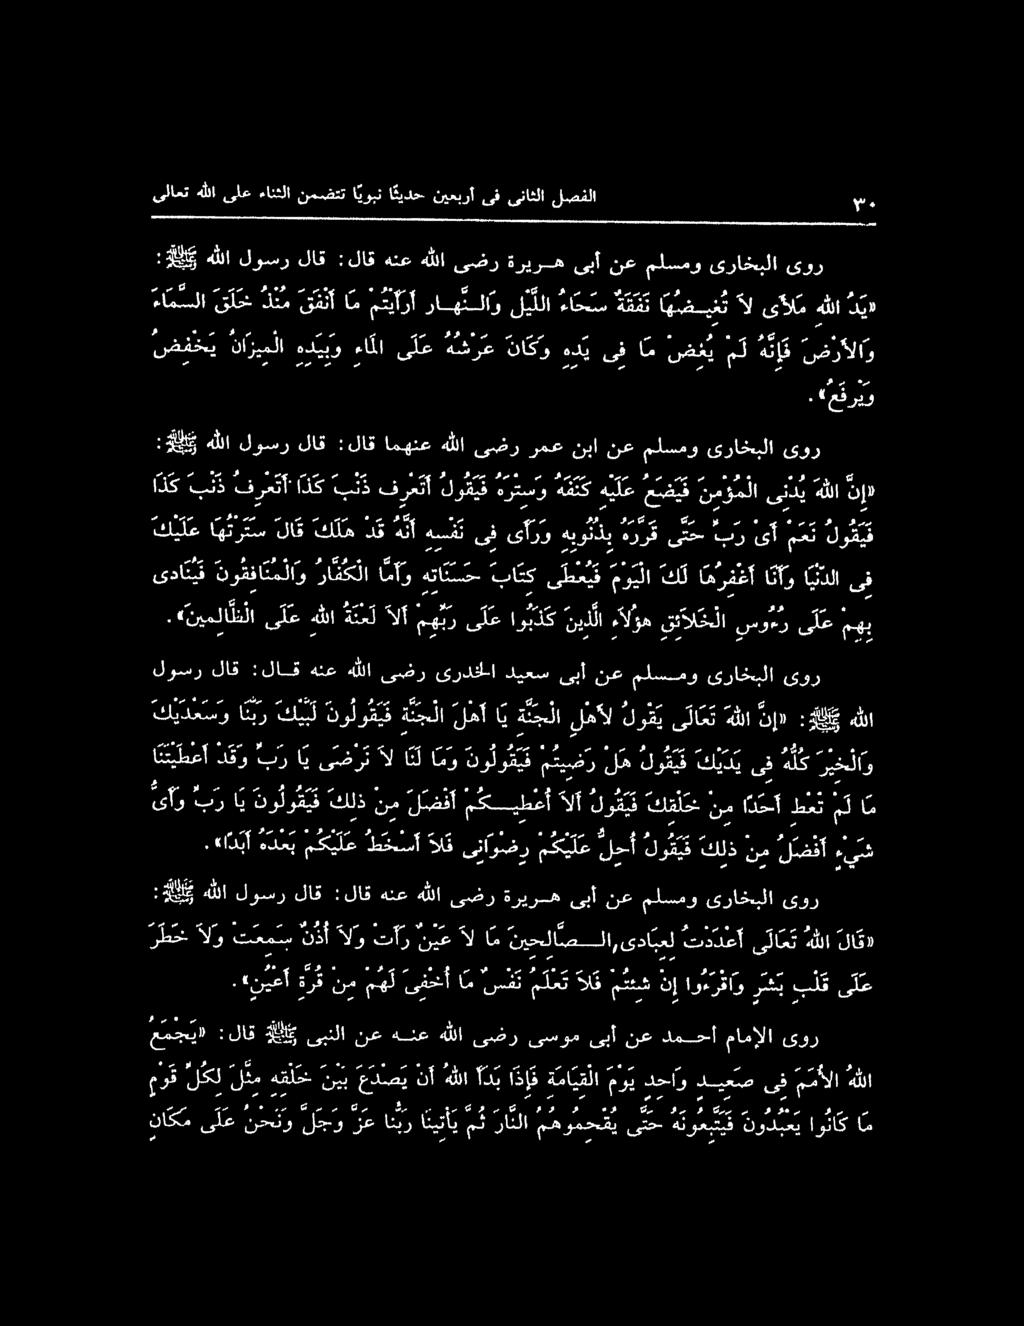 ٣٠ الفصل الثانى فى أربعين حديثًا نبويًا تتضمن الثناء على الله تعالى
روى البخارى ومسلم عن أبى هريرة رضى الله عنه قال: قال رسول الله ﷺ:
«يَدُ اللهِ مَلأَى لاَ تُغِيضُهَا نَفَقَةٌ سَحَاءُ اللَّيْلَ وَالنَّهَار أَرَأَيْتُمْ مَا أَنْفَقَ مُنْذُ خَلَقَ السَّمَاءَ
وَالأَرْضَ فَإِنَّهُ لَمْ يُغِضْ مَا فِى يَدِهِ وَكَانَ عَرْشُهُ عَلَى المَاءِ وَبِيَدِهِ الْمِيزَانُ يَخْفِضُ
وَيَرفَعُ».
روى البخارى ومسلم عن ابن عمر رضى الله عنهما قال: قال رسول الله ﷺ:
«إِنَّ اللهَ يُدْنِى الْمُؤْمِنَ فَيَضَعُ عَلَيْهِ كَنَفَهُ وَسِتْرَهُ فَيَقُولُ أَتَعْرِف ذَنْبَ كَذَا أَتَعْرِفُ ذَنْبَ كَذَا
فَيَقُولُ نَعَمْ أَىْ رَبِّ حَتَّى قَرَّرَهُ بِذُنُوبِهِ وَرَأَى فِى نَفْسِهِ أَنَّهُ قَدْ هَلَكَ قَالَ سَتَرْتُهَا عَلَيْكَ
فِى الدُّنْيَا وَأَنَا أَغْفِرُهَا لَكَ الْيَوْمَ فَيُعْطَى كِتَابَ حَسَنَاتِهِ وَأَمَّا الْكُفَّارُ وَالْمُنَافِقُونَ فَيُنَادى
بِهِمْ عَلَى رُءُوسِ الْخَلاَئِقِ هؤُلاَءِ الَّذِينَ كَذَبُوا عَلَى رَبِّهِمْ أَلاَ لَعْنَةُ اللهِ عَلَى الْظَّالِمِينَ».
روى البخارى ومسلم عن أبى سعيد الخدرى رضى الله عنه قال: قال رسول
الله ﷺ: «إِنَّ اللهَ تَعَالَى يَقُولُ لأَهْلِ الْجَنَّةِ يَا أَهْلَ الْجَنَّةِ فَيَقُولُونَ لَبَّيْكَ رَبَّنَا وَسَعْدَيْكَ
وَالْخَيْرَ كُلُّهُ فِى يَدَيْكَ فَيَقُولُ هَلْ رَضِيتُمْ فَيَقُولُونَ وَمَا لَنَا لاَ نَرْضَى يَا رَبِّ وَقَدْ أَعْطَيْتَنَا
مَا لَمْ تُعْطِ أَحَدًا مِنْ خَلْقِكَ فَيَقُولُ أَلاَ أُعْطِيكُمْ أَفْضَلَ مِنْ ذلِكَ فَيَقُولُونَ يَا رَبِّ وَأَىُّ
شَيْءٍ أَفْضَلُ مِنْ ذلِكَ فَيَقُولُ أُحِلُّ عَلَيْكُمْ رِضْوَانِى فَلاَ أَسْخَطُ عَلَيْكُمْ بَعْدَهُ أَبَدًا».
روى البخارى ومسلم عن أبى هريرة رضى الله عنه قال: قال رسول الله ﷺ:
«قَالَ اللهُ تَعَالَى أَعْدَدْتُ لِعِبَادِى الصَّالِحِينَ مَا لاَ عَيْنٌ رَأَتْ وَلاَ أُذُنٌ سَمِعَتْ وَلاَ خَطَرَ
عَلَى قَلْبِ بَشَرٍ وَاقْرَءُوا إِنْ شِئْتُمْ فَلاَ تَعْلَمُ نَفْسٌ مَا أُخْفِىَ لَهُمْ مِنْ قُرَّةِ أَعْيُنٍ».
روى الإمام أحمد عن أبى موسى رضى الله عنه عن النبى ﷺ قال: «يَجْمَعُ
اللهُ الأُمَمَ فِى صَعِيدٍ وَاحِدٍ يَوْمَ الْقِيَامَةِ فَإِذَا بَدَأَ اللهُ أَنْ يَصْدَعَ بَيْنَ خَلْقِهِ مَثَّلَ لِكُلِّ قَوْمٍ
مَا كَانُوا يَعْبُدُونَ فَيَتَّبِعُونَهُ حَتَّى يُقْحِمُوهُمُ النَّارَ ثُمَّ يَأْتِينَا رَبُّنَا عَزَّ وَجَلَّ وَنَحْنُ عَلَى مَكَانٍ